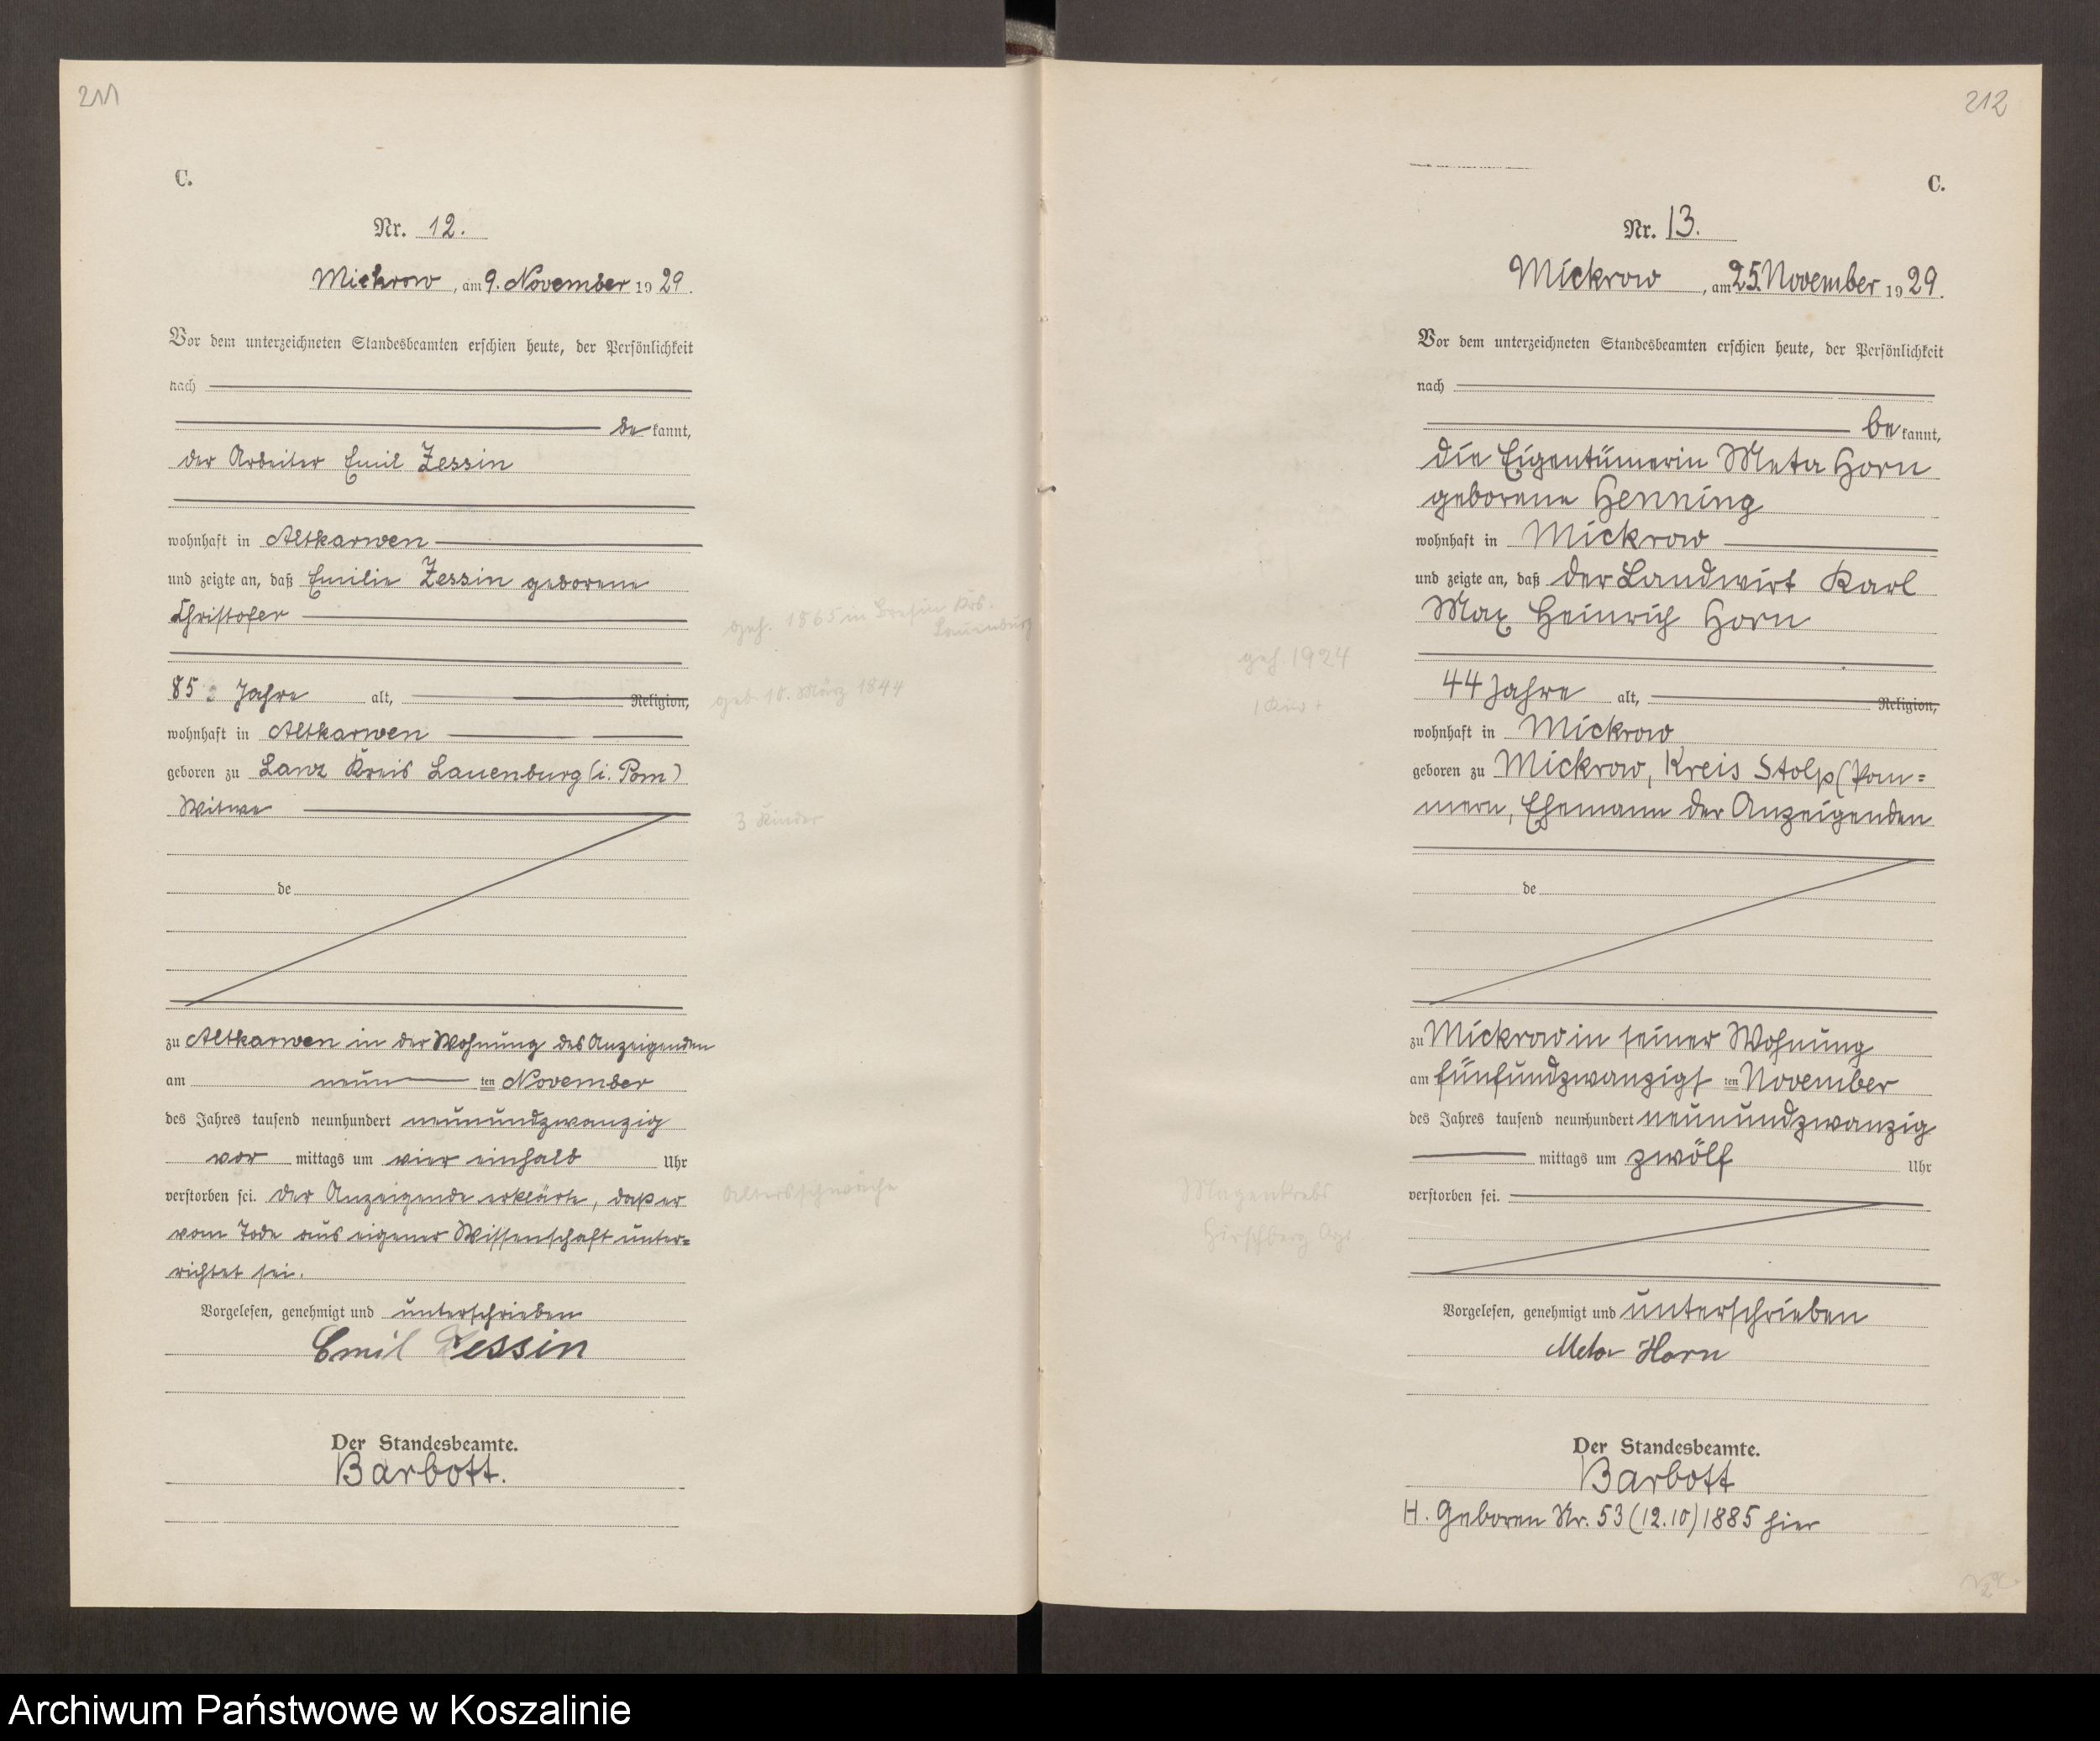 211
C.
Nr. 12.
Mickrow, am 9. November 1929.
Vor dem unterzeichneten Standesbeamten erschien heute, der Persönlichkeit
nach
bekannt,
der Arbeiter Emil Zessin
wohnhaft in Altkarwen
und zeigte an, daß Emilie Zessin geborene
Christofer
geh. 1865 in Kreis
Lauenburg
85 Jahre alt, Religion,
geb. 10. März 1844
wohnhaft in Altkarwen
geboren zu Lanz Kreis Lauenburg (i. Pom)
Witwe
3 Kinder
de
zu Altkarwen in der Wohnung des Anzeigenden
am neun ten November
des Jahres tausend neunhundert neunundzwanzig
vor mittags um vier einhalb Uhr
verstorben sei. Der Anzeigende erklärte, daß er
Altersschwäche
vom Tode aus eigener Wissenschaft unter=
richtet sei.
Vorgelesen, genehmigt und unterschrieben
Emil Zessin
Der Standesbeamte.
Barbott.
212
C.
Nr. 13.
Mickrow, am 25. November 1929.
Vor dem unterzeichneten Standesbeamten erschien heute, der Persönlichkeit
nach
bekannt,
die Eigentümerin Meta Horn
geborene Henning
wohnhaft in Mickrow
und zeigte an, daß der Landwirt Karl
Max Heinrich Horn
geh 1924
44 Jahre alt, Religion,
1 Kind +
wohnhaft in Mickrow
geboren zu Mickrow, Kreis Stolp (Pom=
mern, Ehemann der Anzeigenden
de
zu Mickrow in seiner Wohnung
am fünfundzwanzigs ten November
des Jahres tausend neunhundert neunundzwanzig
mittags um zwölf Uhr
verstorben sei.
Magenkrebs
Hirschberg
Vorgelesen, genehmigt und unterschrieben
Meta Horn
Der Standesbeamte.
Barbott
H. Geboren Nr. 53 (12.10) 1885 hier
Archiwum Państwowe w Koszalinie